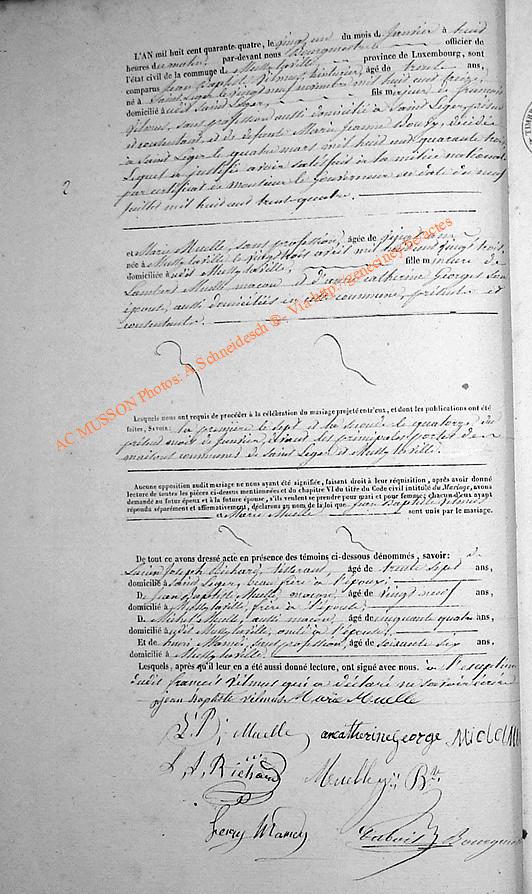 L'AN mil huit cent quarante-quatre, le vingt un du mois de janvier à huit
heures du matin, par-devant nous Bourgmestre officier de
l'état civil de la commune de Mussy-la-ville, province de Luxembourg, sont
comparus Jean Baptiste Vilmus, âgé de trente ans,
né à Saint Leger le vingt neuf novembre mil huit cent treize,
domicilié audit Saint Leger, fils majeur de françois
Vilmus, sans profession aussi domicilié à Saint Leger, présent
et consentant, et de défunte Marie Jeanne décédée
à Saint Leger le quatre mars mil huit cent quarante trois
Lequel a justifié avoir satisfait à la milice nationale
par certificat de Monsieur le Gouverneur en date du neuf
juillet mil huit cent trente quatre.
2
et Marie Muelle, sans profession, âgée de vingt ans,
née à Mussy-la-ville, le vingt trois avril mil huit cent vingt trois
domiciliée audit Mussy-la-ville, fille mineure de
Lambert Muelle, maçon et d'anne Catherine Georges son
épouse, aussi domiciliés en cette commune, présents et
consentants.
Lesquels nous ont requis de procéder à la célébration du mariage projeté entr'eux, et dont les publications ont été
faites, Savoir: la première le sept et la seconde le quatorze du
présent mois de janvier, devant les principales portes des
maisons communes de Saint Leger et Mussy-la-ville.
Aucune opposition audit mariage ne nous ayant été signifiée, faisant droit à leur réquisition, après avoir donné
lecture de toutes les pièces ci-dessus mentionnées et du chapitre VI du titre du Code civil intitulé du Mariage, avons
demandé au futur époux et à la future épouse, s'ils veulent se prendre pour mari et pour femme; chacun d'eux ayant
répondu séparément et affirmativement, déclarons au nom de la loi que Jean Baptiste Vilmus
et Marie Muelle sont unis par le mariage.
De tout ce avons dressé acte en présence des témoins ci-dessous dénommés, savoir: D.
Lucien Joseph Richard, tisserand, âgé de trente sept ans,
domicilié à Saint Leger, beau frère à l'époux;
D. Jean Baptiste Muelle, maçon, âgé de vingt neuf ans,
domicilié à Mussy-la-ville, frère à l'épouse;
D. Michel Muelle, aussi maçon, âgé de cinquante quatre ans,
domicilié audit Mussy-la-ville, oncle à l'épouse;
Et de henri Mamer, sans profession, âgé de soixante six ans,
domicilié à Mussy-la-ville
Lesquels, après qu'il leur en a été aussi donné lecture, ont signé avec nous. à l'exception
dudit françois Vilmus qui a déclaré ne savoir écrire
jean baptiste vilmus Marie Muelle
Muelle ancatherine George Michel
L. J. Richard Muelle Bte
henry Mamer Bourgmestre
AC MUSSON Photos: A. Schneidesch ®- Via http://geneastney-be actes
TIMBRE